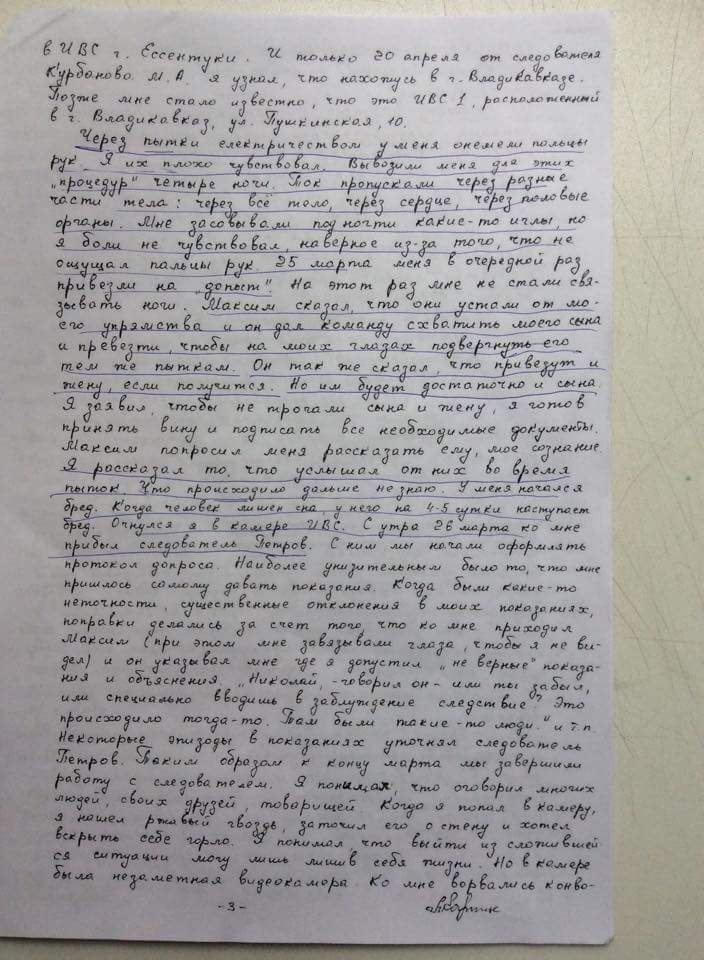 в ИВС г. Ессентуки. И только 20 апреля от следователя
Курбанова М.А. я узнал, что нахожусь в г. Владикавказе.
Позже мне стало известно, что это ИВС 1, расположенный
в г. Владикавказ, ул. Пушкинская, 10.
Через пытки електричеством у меня онемели пальцы
рук. Я их плохо чувствовал. Вывозили меня для этих
„процедур" четыре ночи. Ток пропускали через разные
части тела: через всё тело, через сердце, через половые
органы. Мне засовывали под ногти какие-то иглы, но
я боли не чувствовал, наверное из-за того, что не
ощущал пальцы рук. 25 марта меня в очередной раз
привезли на „допыт". На этот раз мне не стали свя-
зывать ноги. Максим сказал, что они устали от мо-
его упрямства и он дал команду схватить моего сына
и превезти, чтобы на моих глазах подвергнуть его
тем же пыткам. Он так же сказал, что привезут и
жену, если получится. Но им будет достаточно и сына.
Я заявил, чтобы не трогали сына и жену, я готов
принять вину и подписать все необходимые документы.
Максим попросил меня рассказать ему, мое сознание.
Я рассказал то, что услышал от них во время
пыток. Что происходило дальше не знаю. У меня начался
бред. Когда человек лишен сна, у него на 4-5 сутки наступает
бред. Очнулся я в камере ИВС. С утра 26 марта ко мне
прибыл следователь Петров. С ним мы начали оформлять
протокол допроса. Наиболее унизительным было то, что мне
пришлось самому давать показания. Когда были какие-то
неточности, существенные отклонения в моих показаниях,
поправки делались за счет того, что ко мне приходил
Максим (при этом мне завязывали глаза, чтобы я не ви-
дел) и он указывал мне где я допустил „не верные" показа-
ния и объяснения. „Николай, - говорил он - или ты забыл,
или специально вводишь в заблуждение следствие? Это
происходило тогда-то. Там были такие-то люди." и т.п.
Некоторые эпизоды в показаниях уточнял следователь
Петров. Таким образом к концу марта мы завершили
работу с следователем. Я понимал, что оговорил многих
людей, своих друзей, товарищей. Когда я попал в камеру,
я нашел ржавый гвоздь, заточил его о стену и хотел
вскрыть себе горло. Я понимал, что выйти из сложившей
ся ситуации могу лишь лишив себя жизни. Но в камере
была незаметная видеокамера. Ко мне ворвались конво-
-3-